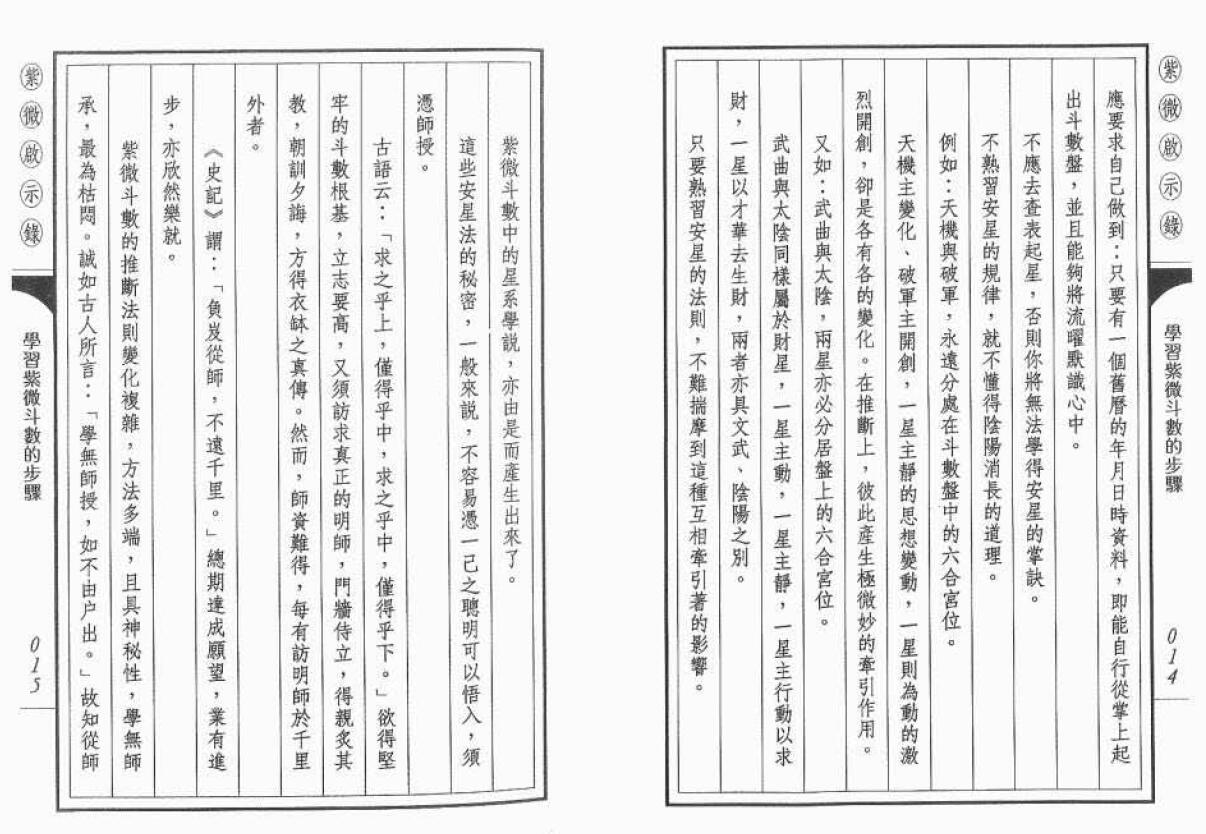 紫微啟示錄
學習紫微斗數的步驟
014
應要求自己做到：只要有一個舊曆的年月日時資料，即能自行從掌上起
出斗數盤，並且能夠將流曜默識心中。
不應去查表起星，否則你將無法學得安星的掌訣。
不熟習安星的規律，就不懂得陰陽消長的道理。
例如：天機與破軍，永遠分處在斗數盤中的六合宮位。
天機主變化、破軍主開創，一星主靜的思想變動，一星則為動的激
烈開創，卻是各有各的變化。在推斷上，彼此產生極微妙的牽引作用。
又如：武曲與太陰，兩星亦必分居盤上的六合宮位。
武曲與太陰同樣屬於財星，一星主動，一星主靜，一星主行動以求
財，一星以才華去生財，兩者亦具文武、陰陽之別。
只要熟習安星的法則，不難揣摩到這種互相牽引著的影響。
紫微斗數中的星系學說，亦由是而產生出來了。
這些安星法的秘密，一般來說，不容易憑一己之聰明可以悟入，須
憑師授。
古語云：「求之乎上，僅得乎中，求之乎中，僅得乎下。」欲得堅
牢的斗數根基，立志要高，又須訪求真正的明師，門牆侍立，得親炙其
教，朝訓夕誨，方得衣缽之真傳。然而，師資難得，每有訪明師於千里
外者。
《史記》謂：「負笈從師，不遠千里。」總期達成願望，業有進
步，亦欣然樂就。
紫微斗數的推斷法則變化複雜，方法多端，且具神秘性，學無師
承，最為枯悶。誠如古人所言：「學無師授，如不由户出。」故知從師
紫微啟示錄
學習紫微斗數的步驟
015